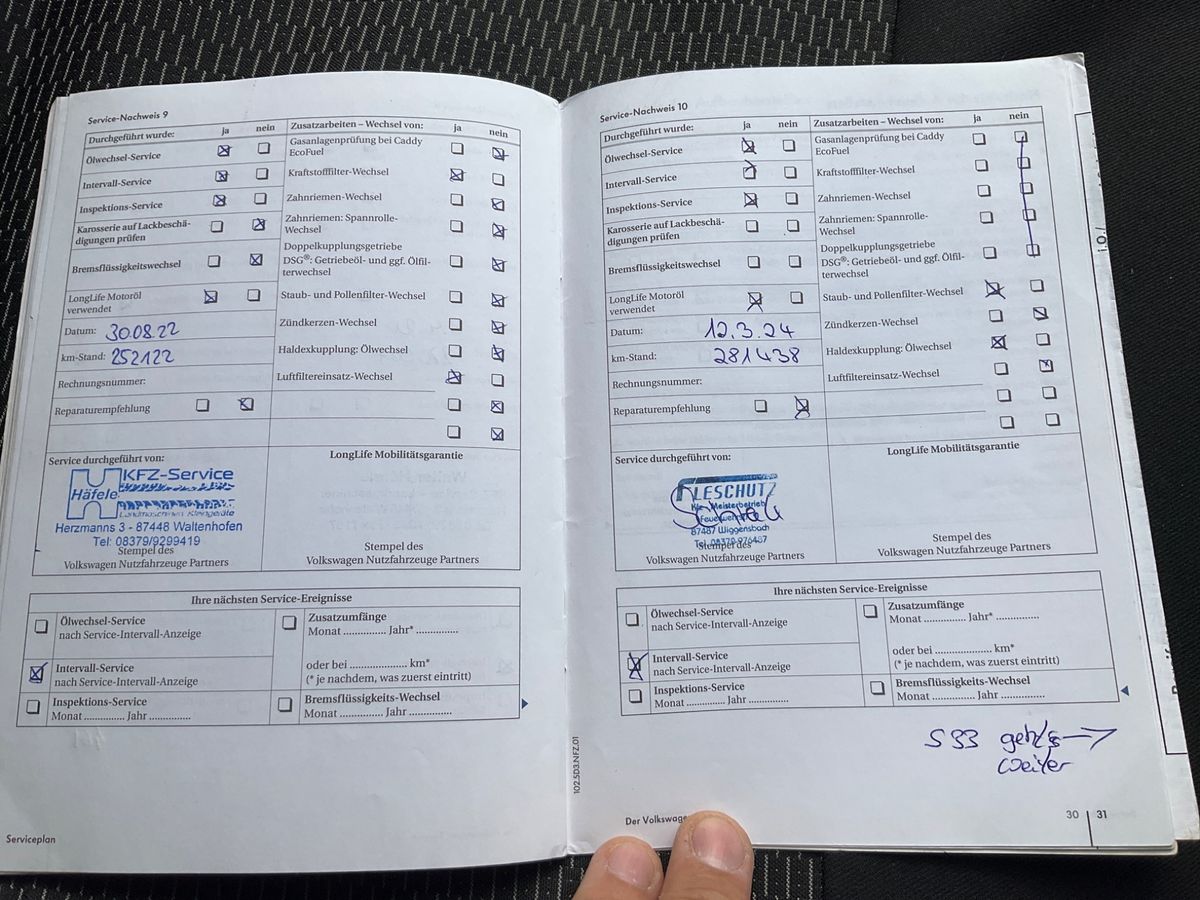 Service-Nachweis 9
Durchgeführt wurde: ja nein
Ölwechsel-Service
Intervall-Service
Inspektions-Service
Karosserie auf Lackbeschä-
digungen prüfen
Bremsflüssigkeitswechsel
LongLife Motoröl
verwendet
Datum: 30.08.22
km-Stand: 252122
Rechnungsnummer:
Reparaturempfehlung
Zusatzarbeiten – Wechsel von: ja nein
Gasanlagenprüfung bei Caddy
EcoFuel
Kraftstofffilter-Wechsel
Zahnriemen-Wechsel
Zahnriemen: Spannrolle-
Wechsel
Doppelkupplungsgetriebe
DSG®: Getriebeöl- und ggf. Ölfil-
terwechsel
Staub- und Pollenfilter-Wechsel
Zündkerzen-Wechsel
Haldexkupplung: Ölwechsel
Luftfiltereinsatz-Wechsel
Service durchgeführt von:
KFZ-Service
Häfele
Landmaschinen Kleingeräte
Herzmanns 3 - 87448 Waltenhofen
Tel: 08379/9299419
Stempel des
Volkswagen Nutzfahrzeuge Partners
LongLife Mobilitätsgarantie
Stempel des
Volkswagen Nutzfahrzeuge Partners
Ihre nächsten Service-Ereignisse
Ölwechsel-Service
nach Service-Intervall-Anzeige
Intervall-Service
nach Service-Intervall-Anzeige
Inspektions-Service
Monat ............ Jahr ............
Zusatzumfänge
Monat ............ Jahr* ............
oder bei .................. km*
(* je nachdem, was zuerst eintritt)
Bremsflüssigkeits-Wechsel
Monat ............ Jahr ............
102.5D3.NFZ.01
Serviceplan
Service-Nachweis 10
Durchgeführt wurde: ja nein
Ölwechsel-Service
Intervall-Service
Inspektions-Service
Karosserie auf Lackbeschä-
digungen prüfen
Bremsflüssigkeitswechsel
LongLife Motoröl
verwendet
Datum: 12.3.24
km-Stand: 281438
Rechnungsnummer:
Reparaturempfehlung
Zusatzarbeiten – Wechsel von: ja nein
Gasanlagenprüfung bei Caddy
EcoFuel
Kraftstofffilter-Wechsel
Zahnriemen-Wechsel
Zahnriemen: Spannrolle-
Wechsel
Doppelkupplungsgetriebe
DSG®: Getriebeöl- und ggf. Ölfil-
terwechsel
Staub- und Pollenfilter-Wechsel
Zündkerzen-Wechsel
Haldexkupplung: Ölwechsel
Luftfiltereinsatz-Wechsel
Service durchgeführt von:
FLESCHUTZ
Kfz-Meisterbetrieb
87487 Wiggensbach
Tel. 08370-976487
Stempel des
Volkswagen Nutzfahrzeuge Partners
LongLife Mobilitätsgarantie
Stempel des
Volkswagen Nutzfahrzeuge Partners
Ihre nächsten Service-Ereignisse
Ölwechsel-Service
nach Service-Intervall-Anzeige
Intervall-Service
nach Service-Intervall-Anzeige
Inspektions-Service
Monat ............ Jahr ............
Zusatzumfänge
Monat ............ Jahr* ............
oder bei .................. km*
(* je nachdem, was zuerst eintritt)
Bremsflüssigkeits-Wechsel
Monat ............ Jahr ............
S 33 geht's →
weiter
Der Volkswage
30 31
i.O./